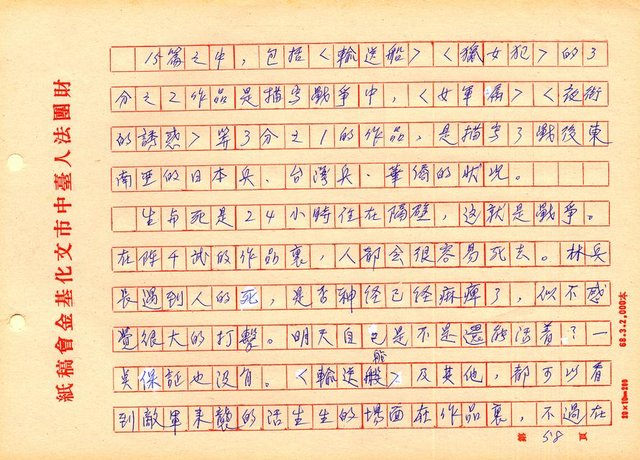 15篇之中,包括〈輸送船〉〈獵女犯〉的3
分之2作品是描写戰爭中,〈女軍屬〉〈夜街
的誘惑〉等3分之1的作品,是描写了戰後東
南亜的日本兵、台湾兵、華僑的狀況。
生与死是24小時住在隔壁,這就是戰爭。
在陳千武的作品裏,人都会很容易死去。林兵
長遇到人的死,是否神経已経麻痺了,似不感
覺很大的打擊。明天自己是不是還能活着?一
吳保証也没有。〈輸送船〉及其他,都可以看
到敵軍来襲的活生生的場面在作品裏,不過在
船
第 58 頁
財團法人臺中市文化基金會稿紙
68.3.2,000本
20×10=200